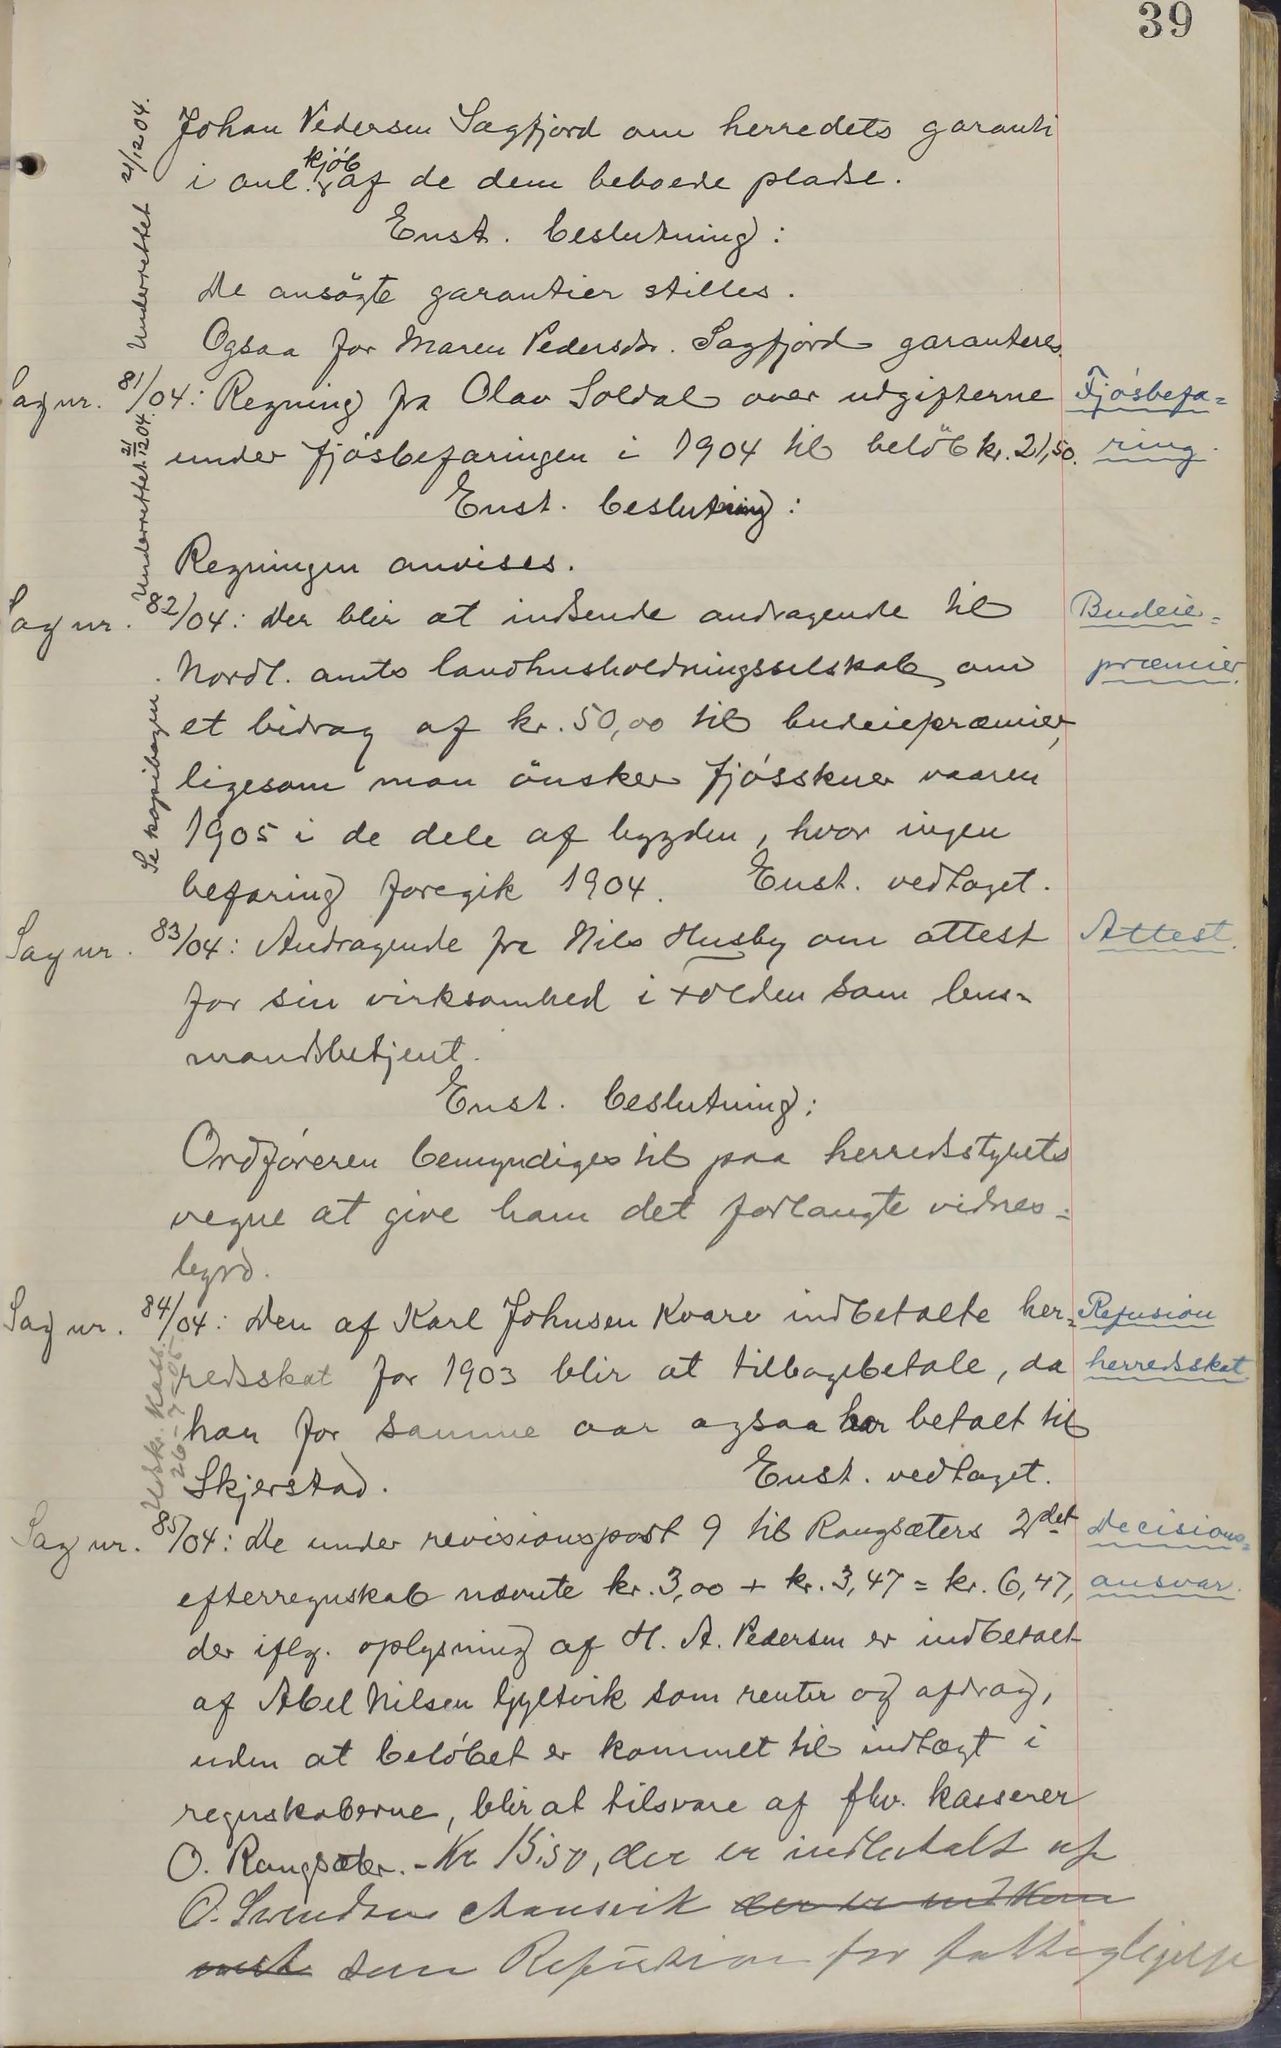 39
Johan Pedersen Sagfjord om herredets garanti
i anl. kjøb af de dem beboede pladse.
Enst. beslutning:
De ansøgte garantier stilles.
Ogsaa for Maren Pedersdr. Sagfjord garanteres.
Underrettet 21/12 04.
Sag nr. 81/04: Regning fra Olav Soldal over udgifterne
under fjøsbefaringen i 1904 til beløb kr. 21,50.
Fjøsbefa=
ring.
Enst. beslutning:
Regningen anvises.
Underrettet 21/12 04.
Sag nr. 82/04: Der blir at indsende andragende til
Nordl. amts landhusholdningsselskab om
et bidrag af kr. 50,00 til budeiepræmier,
ligesom man ønsker fjøsskuer vaaren
1905 i de dele af bygden, hvor ingen
befaring foregik 1904. Enst. vedtaget.
Budeie=
præmier.
Se kopibogen.
Sag nr. 83/04: Andragende fra Nils Husby om attest
for sin virksomhed i Folden som lens=
mandsbetjent.
Attest.
Enst. beslutning:
Ordføreren bemyndiges til paa herredsstyrets
vegne at give ham det forlangte vidnes=
byrd.
Sag nr. 84/04: Den af Karl Johnsen Kvarv indbetalte her=
redsskat for 1903 blir at tilbagebetale, da
han for samme aar ogsaa har betalt til
Skjerstad. Enst. vedtaget.
Refusion
herredsskat
Utskr. Kass.
26-7-05.
Sag nr. 85/04: De under revisionspost 9 til Rangsæters 2det
efterregnskab nævnte kr. 3,00 + kr. 3,47 = kr. 6,47,
der iflg. oplysning af H. A. Pedersen er indbetalt
af Abel Nilsen Gyltvik som renter og afdrag,
uden at beløbet er kommet til indtægt i
regnskaberne, blir at tilsvare af fhv. kasserer
O. Rangsæter. - Kr 15,50, der er indbetalt af
O. Svendsen Mansvik der er indkom
met som Refusion for fattighjelp
Decisions=
ansvar.